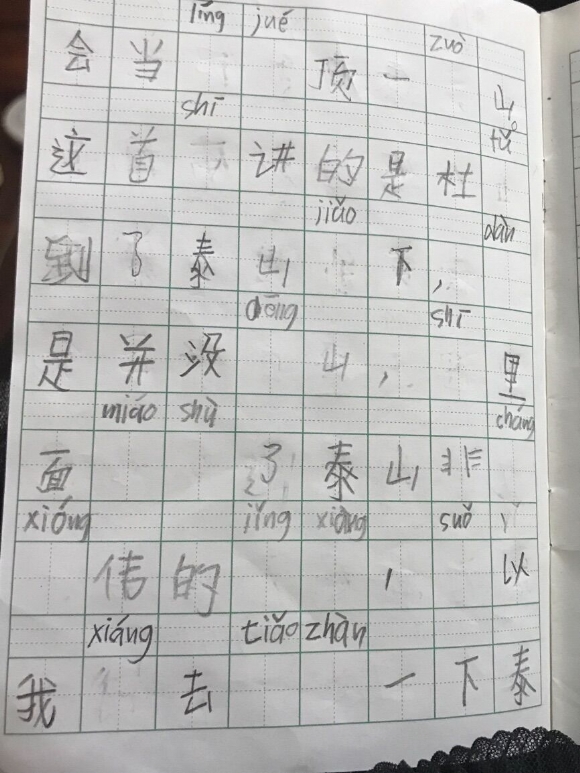 líng jué zuò
会当顶一山。
shī fǔ
这首讲的是杜
jiǎo dàn
到了泰山下，
dēng shī
是并没山，里
miáo shù cháng
面了泰山非
xióng jǐng xiàng suǒ yǐ
伟的，以
xiáng tiǎo zhàn
我去一下泰